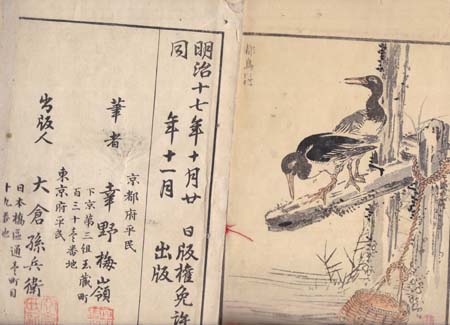 明治十七年十月廿　日版權免許
同　　年十一月　　出版
京都府平民
筆者　幸野楳嶺
下京第三組玉藏町
百三十壱番地
東京府平民
出版人　大倉孫兵衛
日本橋區通壱町目
十九番地